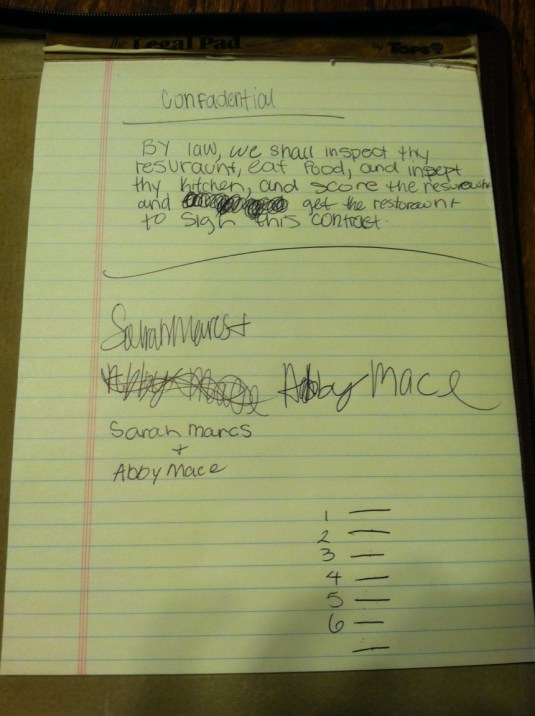 The Legal Pad
by TOPS
Confadential
By law, we shall inspect thy
resuraunt, eat food, and inspept
thy kitchen, and score the
and get the restoreunt
to sign this contract.
Sarah Marcs +
Abby Mace Abby Mace
Sarah Marcs
+
Abby Mace
1
2
3
4
5
6